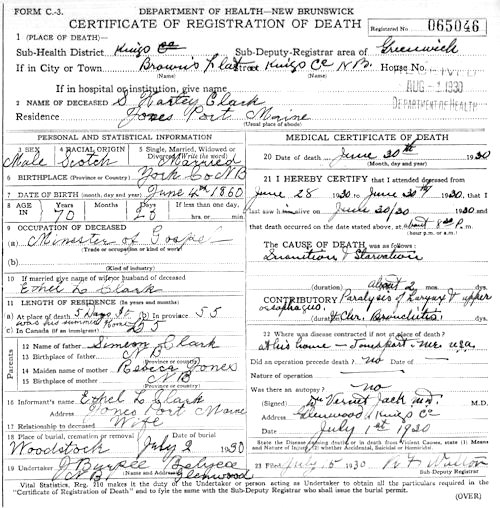 FORM C.-3. DEPARTMENT OF HEALTH—NEW BRUNSWICK
CERTIFICATE OF REGISTRATION OF DEATH
Registered No 065046
1 (PLACE OF DEATH)—
Sub-Health District Kings Co Sub-Deputy-Registrar area of Greenwich
If in City or Town Brown's Flat Street Kings Co N.B. House No.
(Name) (Name)
AUG 1930
DEPARTMENT OF HEALTH
If in hospital or institution, give name
2 NAME OF DECEASED S Hartley Clark
Residence Jones Port Maine
(Usual place of abode)
PERSONAL AND STATISTICAL INFORMATION
3 SEX 4 RACIAL ORIGIN 5 Single, Married, Widowed or Divorced (Write the word)
Male Scotch Married
6 BIRTHPLACE (Province or Country) York Co N B
7 DATE OF BIRTH (month, day and year) June 4th 1860
8 AGE IN Years Months Days If less than one day,
70 26 hrs. or min.
9 OCCUPATION OF DECEASED
(a) Minister of Gospel
(Trade or occupation or kind of work)
(b)
(Kind of industry)
10 If married give name of wife or husband of deceased
Ethel L Clark
11 LENGTH OF RESIDENCE (In years and months)
(a) At place of death 5 Days It (b) In province 55
was his summer Home
(c) In Canada (if an immigrant) 55
Parents
12 Name of father Simeon Clark
13 Birthplace of father N B
(Province or Country)
14 Maiden name of mother Rebecca Jones
15 Birthplace of mother N B
(Province or country)
16 Informant Ethel L Clark
Address Jones Port Maine
17 Relationship to deceased Wife
18 Place of burial, cremation or removal Date of burial
Woodstock July 2 1930
19 Undertaker J Burpee Belyea
Address N B Glenwood
MEDICAL CERTIFICATE OF DEATH
20 Date of death June 30th 1930
(Month, day and year)
21 I HEREBY CERTIFY that I attended deceased from
June 28 1930 to June 30th 1930, that I
last saw him alive on June 30/30 1930 and
that death occurred on the date stated above, at about 8 P.M.
(hour p.m. or a.m.)
The CAUSE OF DEATH was as follows:
Inanition & Starvation
(duration) about 2 mos. dys.
CONTRIBUTORY Paralysis of Larynx & upper
oesophagus.
(duration) & Chr. Bronchitis dys.
22 Where was disease contracted if not at place of death?
at his home — Jonesport - Me. U.S.A.
Did an operation precede death? no Date of —
Nature of operation —
Was there an autopsy? no
(Signed) Vernet Jack M.D. M.D.
Address Glenwood Kings Co
Date July 1st 1930
State the Disease causing death, or in death from Violent Causes, state (1) Means and Nature of Injury, (2) whether Accidental, Suicidal or Homicidal.
23 Filed July 5 1930 Walton
Sub-Deputy Registrar
Vital Statistics, Reg. 210 makes it the duty of the Undertaker or person acting as Undertaker to obtain all the particulars required in the
"Certificate of Registration of Death" and to file the same with the Sub-Deputy Registrar who shall issue the burial permit.
(OVER)